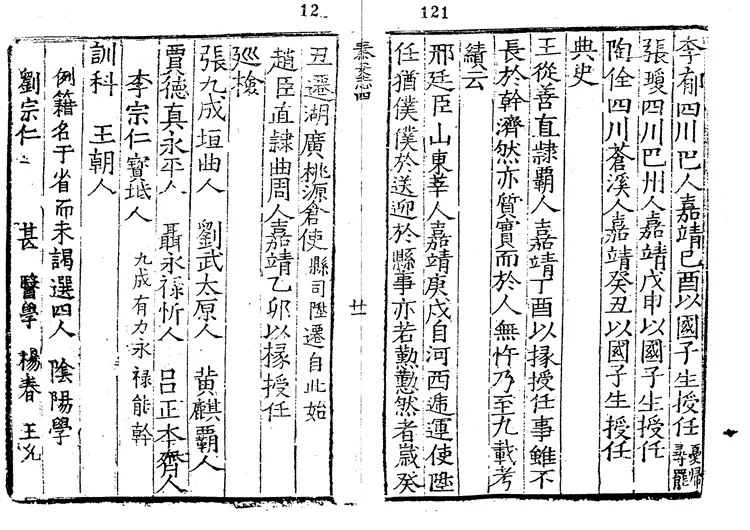 121
李有四川巴人嘉靖己酉以國子生授任憂歸尋罷
張璦四川巴州人嘉靖戊申以國子生授任
陶佺四川蒼溪人嘉靖癸丑以國子生授任
典史
王從善直隸霸人嘉靖丁酉以掾授任事雖不
長於幹濟然亦質實而於人無忤乃至九載考
績云
邢廷臣山東莘人嘉靖庚戍自河西遞運使陞
任猶僕僕於送迎於縣事亦若懃懃然者歲癸
廿一
12
丑遷湖廣桃源倉使縣司陞遷自此始
趙臣直隸曲周人嘉靖乙卯以掾授任
廵檢
張九成垣曲人 劉武太原人 黄麒霸人
賈德真永平人 聶永禄忻人 吕正本齊人
李宗仁寳坻人 九成有力永禄能幹
訓科 王朝人
例籍名于省而未謁選四人 隂陽學
劉宗仁 醫學 楊春